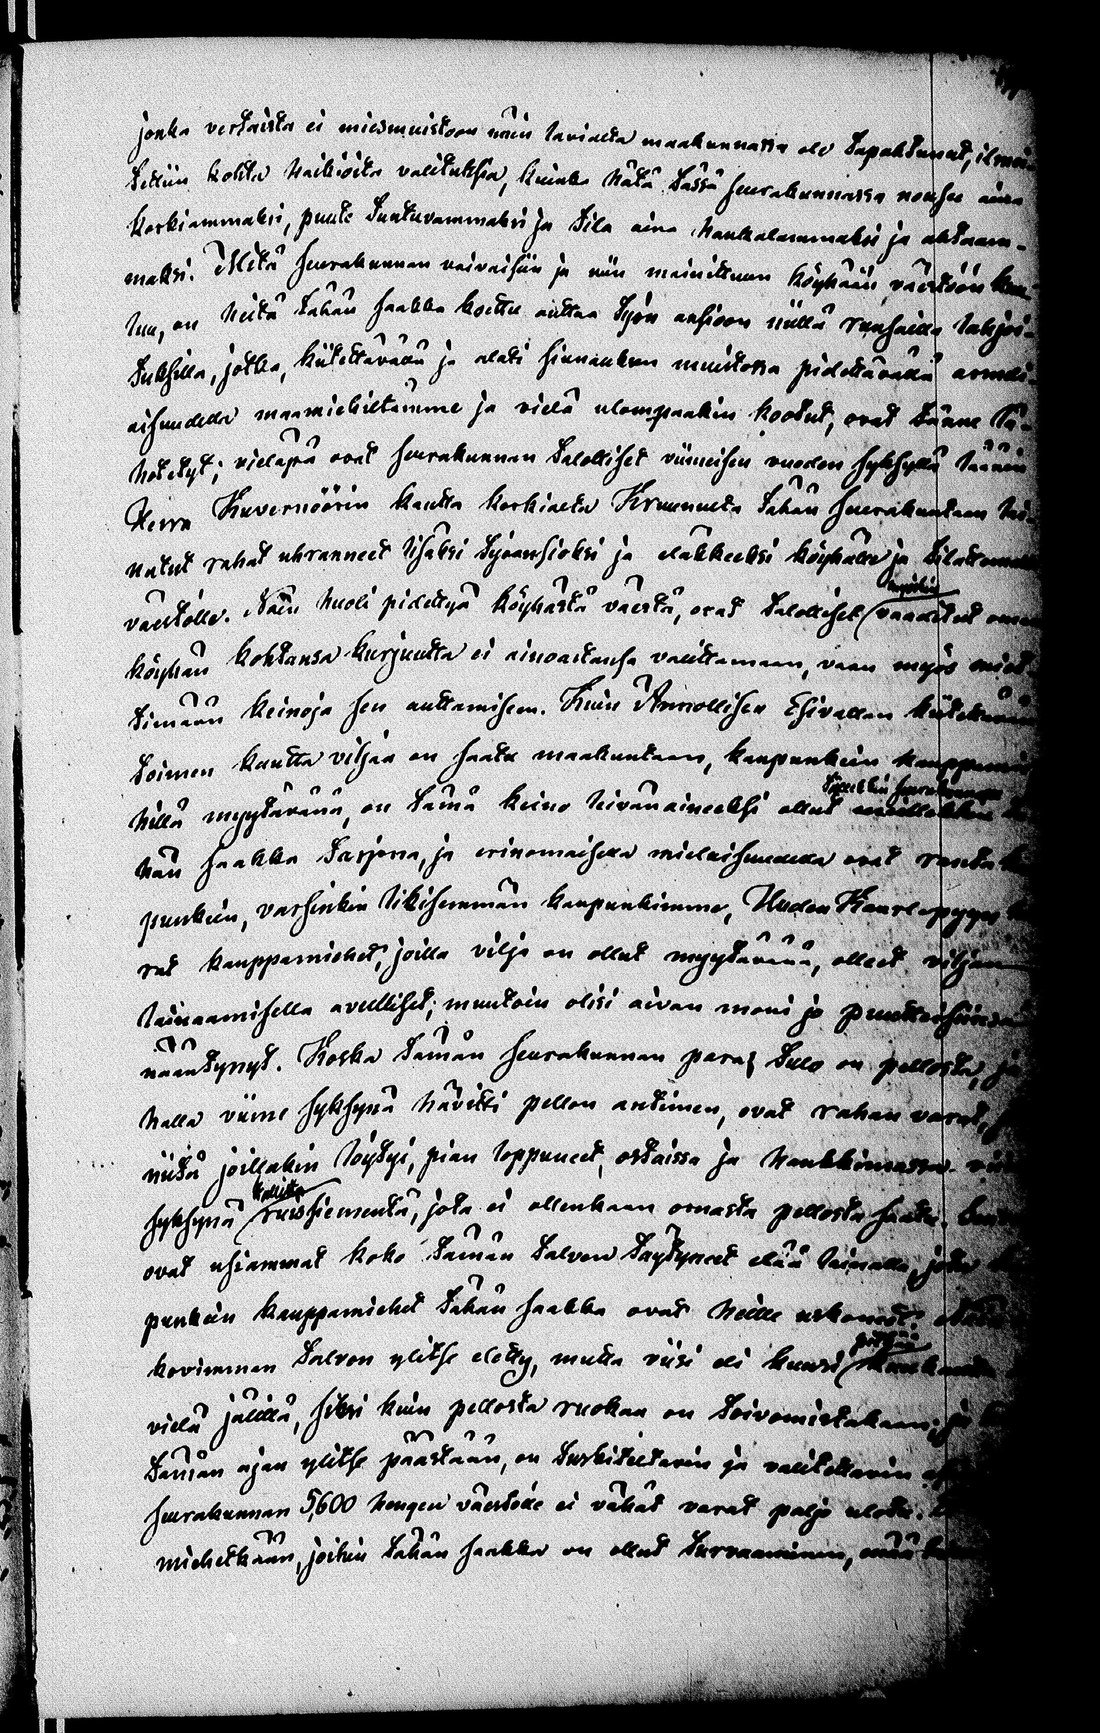 jonka vertaista ei miesmuistoon näin laviata maakunnassa ole tapahtunut, ilmoi-
tettiin kohta haikioita valituksia, kuinka hätä tässä seurakunnassa nousee aina
korkiammaksi, puute tuntuvammaksi ja tila aina hankalammaksi ja ahtaam-
maksi. Mitä seurakunnan vaivaisiin ja niin mainittuun köyhään väestöön kuu-
luu, on heitä tähän saakka koettu auttaa työn ansioon niillä runsailla lahjoi-
tuksilla, jotka, kiitettävään ja alati siunauksen muistossa pidettävällä armeli-
aisuudella maamiehiltämme ja vielä ulompaakin kootut, ovat tänne lä-
hetetyt; vieläpä ovat seurakunnan talolliset viimeisen vuoden syksyllä läänin
Herra Kuvernöörin kautta korkialta Kruunulta tähän seurakuntaan lai-
natut rahat uhranneet lisäksi työansioksi ja elakkeeksi köyhälle ja tilattomalle
väestölle. Näin huoli pidettyä köyhästä väestä, ovat talolliset myöskin vaaditut oman
köyhän kohtansa kurjuutta ei ainoastansa valittamaan, vaan myös miet-
timään keinoja sen auttamiseen. Kuin Armollisen Esivallan kiitettävän
toimen kautta viljaa on saatu maakuntaan, kaupunkein kauppamie-
hillä myytävänä, on tämä keino leivänaineeksi ollut tämänkin seurakunnan
hän saakka tarjona, ja erinomaisella mielaisuudella ovat ranta
punkein, varsinkin likisemmän kaupunkimme, Uuden Kaarlepyyn
rat kauppamiehet, joilla vilja on ollut myytävänä, olleet viljan
lainaamisella avulliset; muutoin olisi aivan moni jo puutteisiinsa
nääntynyt. Koska tämän seurakunnan paras tulo on pellosta, ja
halla viime syksynä hävitti pellon antimen, ovat rahan varat,
niitä joillakin löytyi, pian loppuneet, ostaissa ja hankkimassa
syksynä kallista ruis siementä, jota ei ollenkaan omasta pellosta saatu.
ovat usiammat koko tämän talven täytyneet elää lainalla, jota
punkein kauppamiehet tähän saakka ovat heille uskoneet.
kovimman talven ylitse eletty, mutta viisi eli kuusi pitkää kuukautta
vielä jälillä, siksi kuin pellosta ruokaa on toivomistakaan; ja
tämän ajan ylitse päästään, on tutkisteltavin ja valitettavin
seurakunnan 5,600 hengen väestölle ei vähät varat paljo ulotu.
miehetkään, joihin tähän saakka on ollut turvaaminen, enää